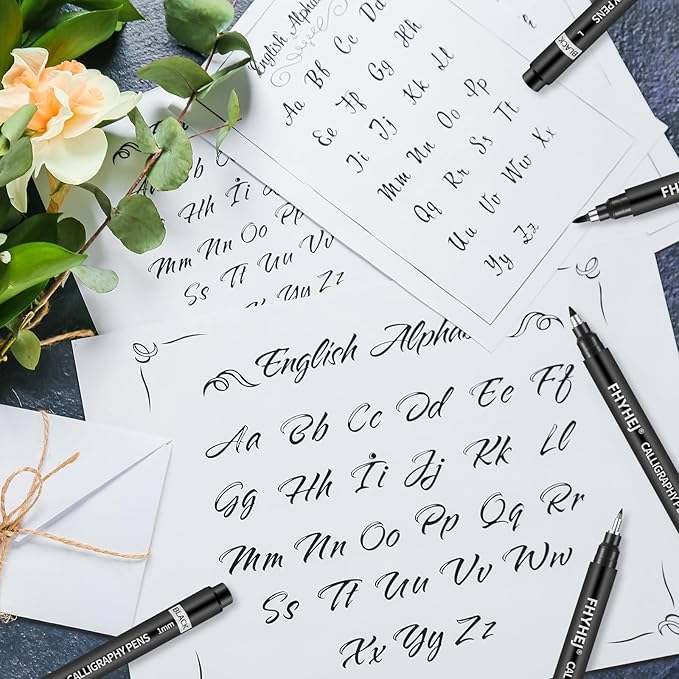 English Alphab
Aa Bb Cc Dd
Ee Ff Gg Hh
Ii Jj Kk Ll
Mm Nn Oo Pp
Qq Rr Ss Tt
Uu Vv Ww Xx
Yy Zz
Hh Ii
Mm Nn Oo Pp
Ss Tt Uu Vv
Yy Zz
English Alphab
Aa Bb Cc Dd Ee Ff
Gg Hh Ii Jj Kk Ll
Mm Nn Oo Pp Qq Rr
Ss Tt Uu Vv Ww
Xx Yy Zz
Y PENS
BLACK
L
FHYHEJ
FHYHEJ® CALLIGRAPHY PEN
FHYHEJ® CAL
CALLIGRAPHY PENS 1mm BLACK